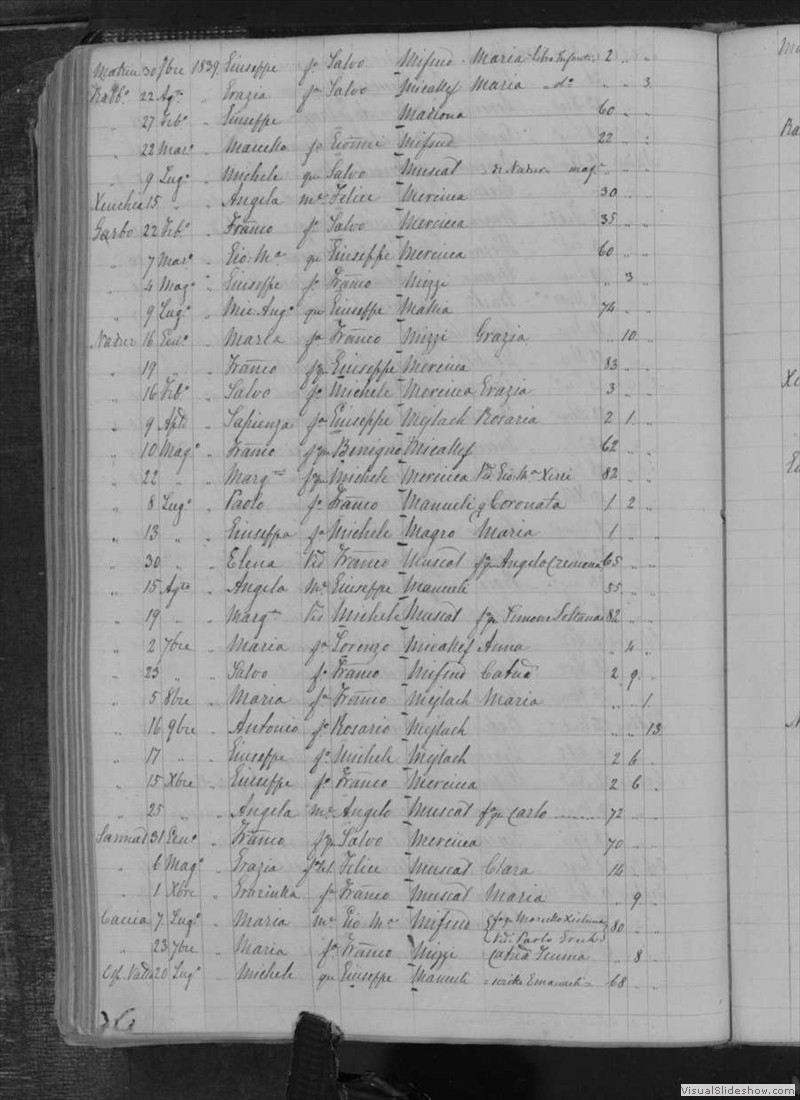 Matrice 30 9bre 1839 Giuseppe fo Salvo Mifsud Maria libro Infanti 2 " "
Rabbo 22 Agto " Grazia fa Salvo Micallef Maria do " " 3
" 27 Febo " Giuseppe Madiona 60 " "
" 22 Maro " Marcello fo Giovni Mifsud 22 " "
" 9 Lugo " Michele qu Salvo Muscat di Nadur mage " "
Xeuchia 15 " " Angela me Felice Mercieca 30 " "
Garbo 22 Febo " Franco fo Salvo Mercieca 35 " "
" 7 Maro " Gio: Ma qu Giuseppe Mercieca 60 " "
" 4 Mago " Giuseppe fo Franco Mizzi " 3 "
" 9 Lugo " Mic:Ango qu Giuseppe Mallia 74 " "
Nadur 16 Geno " Maria fa Franco Mizzi Grazia " 10 "
" 19 " " Franco fqu Giuseppe Mercieca 83 " "
" 16 Febo " Salvo fo Michele Mercieca Grazia 3 " "
" 9 Aple " Sapienza fa Giuseppe Mejlach Rosaria 2 1 "
" 10 Mago " Franco fqu Benigno Micallef 62 " "
" 22 " " Margta fqu Michele Mercieca Vd Gio Ma Xerri 82 " "
" 8 Lugo " Paolo fo Franco Manueli q Coronata 1 2 "
" 13 " " Giuseppa fa Michele Magro Maria 1 " "
" 30 " " Elena Vd Franco Muscat fqu Angelo Cremona 65 " "
" 15 Agto " Angela me Giuseppe Manueli 55 " "
" 19 " " Margta Vd Michele Muscat fqu Simone Soltana 82 " "
" 2 7bre " Maria fa Lorenzo Micallef Anna " 4 "
" 23 " " Salvo fo Franco Mifsud Catna 2 9 "
" 5 8bre " Maria fa Franco Mejlach Maria " " 1
" 16 9bre " Antonio fo Rosario Mejlach " " 13
" 17 " " Giuseppe fo Michele Mejlach 2 6 "
" 15 Xbre " Giuseppe fo Franco Mercieca 2 6 "
" 25 " " Angela me Angelo Muscat fqu Carlo 72 " "
Sannat 31 Geno " Franco fqu Salvo Mercieca 70 " "
" 6 Mago " Grazia Felice Muscat Clara 14 " "
" 1 Xbre " Graziulla fa Franco Muscat Maria " 9 "
Caccia 7 Lugo " Maria me Gio Ma Mifsud fqu Marcello Xicluna 80 " "
Vd: Paolo
" 23 7bre " Maria fa Franco Mizzi Catna " 8 "
20 Lugo " Michele qu Giuseppe Manueli Emanueli 68 " "
VisualSlideshow.com